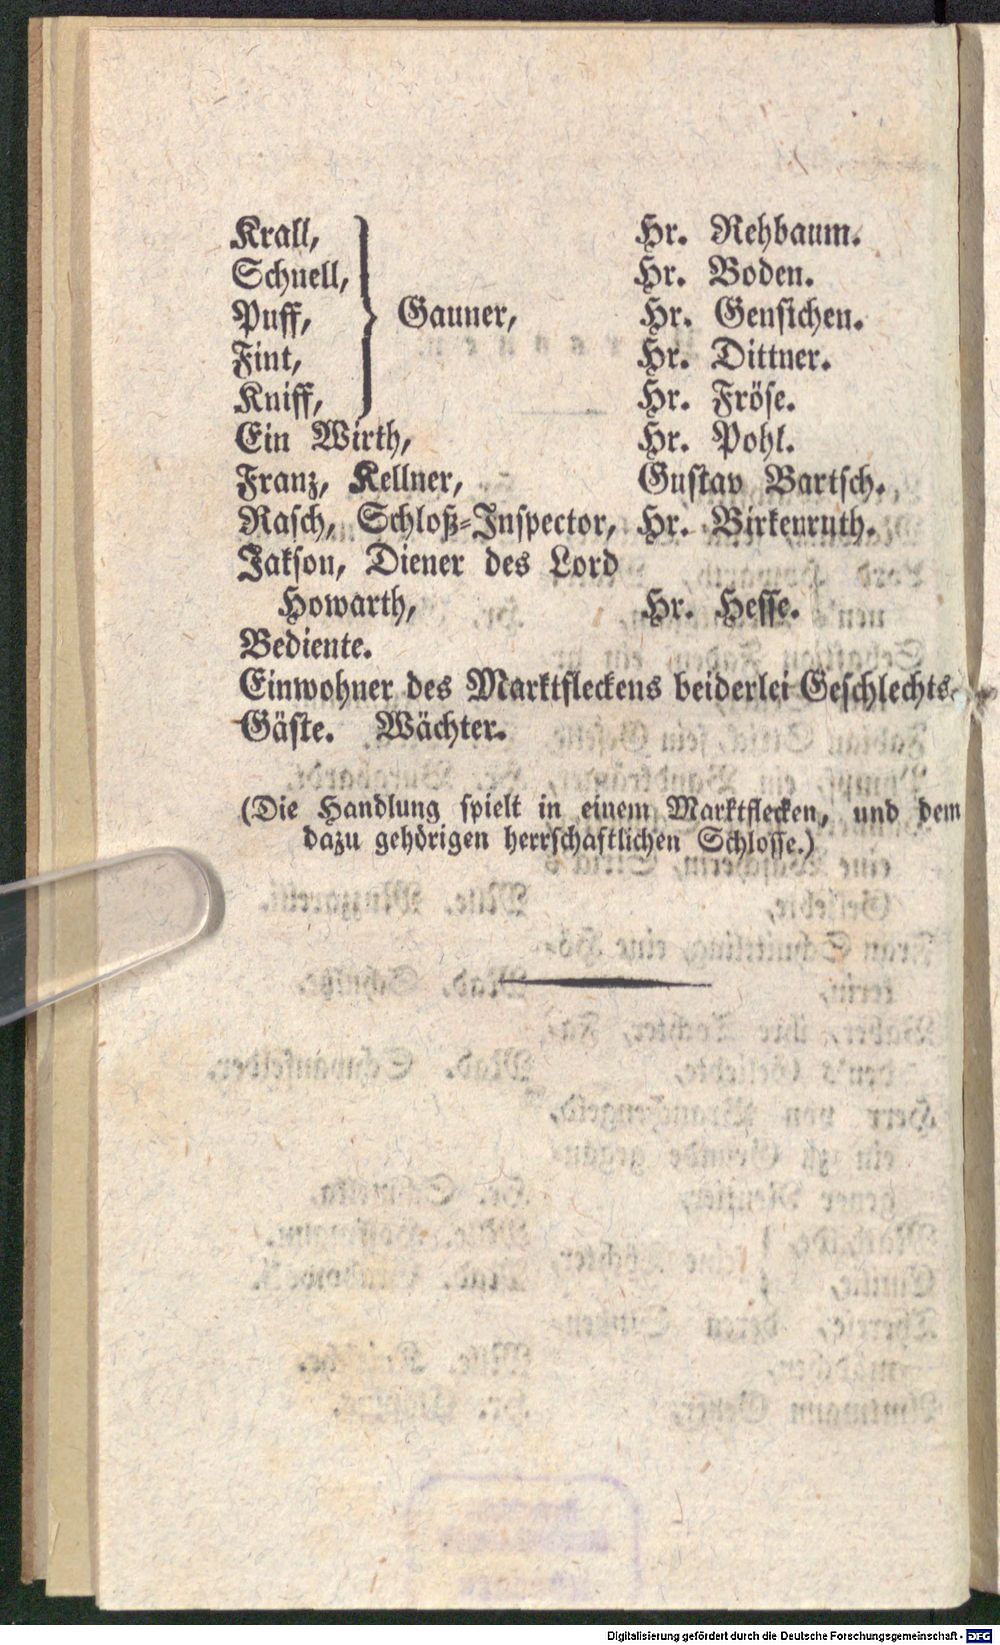 Krall, Hr. Rehbaum.
Schnell, Hr. Boden.
Puff, Gauner, Hr. Gensichen.
Fint, Hr. Dittner.
Kniff, Hr. Fröse.
Ein Wirth, Hr. Pohl.
Franz, Kellner, Gustav Bartsch.
Rasch, Schloß-Inspector, Hr. Birkenruth.
Jakson, Diener des Lord
Howarth, Hr. Hesse.
Bediente.
Einwohner des Marktfleckens beiderlei Geschlechts.
Gäste. Wächter.
(Die Handlung spielt in einem Marktflecken, und dem
dazu gehörigen herrschaftlichen Schlosse.)
Digitalisierung gefördert durch die Deutsche Forschungsgemeinschaft - DFG